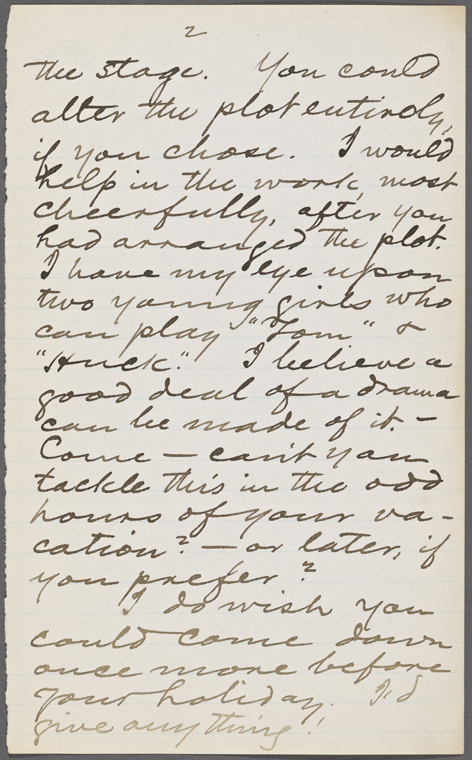 2
the stage. You could
alter the plot entirely,
if you chose. I would
help in the work, most
cheerfully, after you
had arranged the plot.
I have my eye upon
two young girls who
can play "Tom" &
"Huck." I believe a
good deal of a drama
can be made of it. —
Come — can't you
tackle this in the odd
hours of your va-
cation? — or later, if
you prefer?
I do wish you
could come down
once more before
your holiday. I'd
give anything!